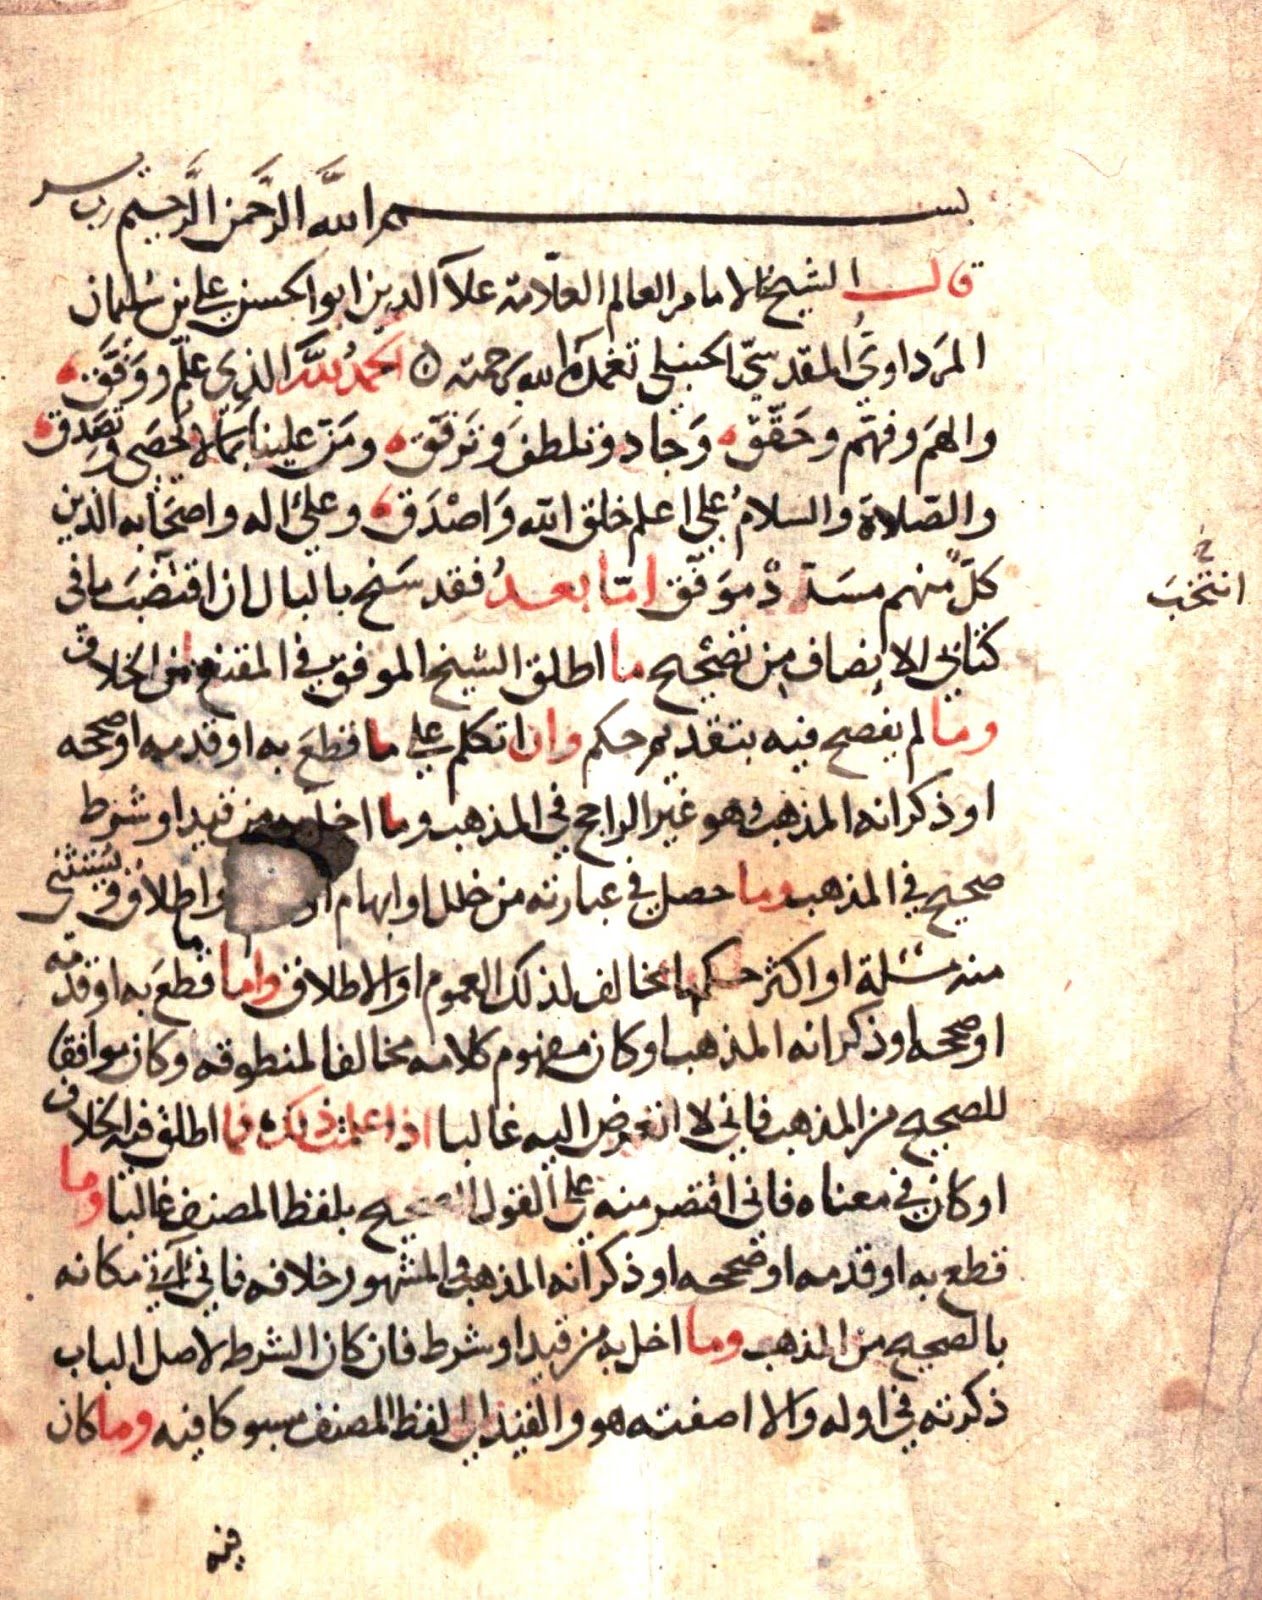 بسم الله الرحمن الرحيم رب يسر
قال الشيخ الامام العالم العلامة علآ الدين ابو الحسن علي بن سليمان
المرداوي المقدسي الحنبلي تغمده الله برحمته الحمد لله الذي علم ووفق
والهم وفهم وحقق وجاد وتلطف وترفق ومن علينا بما لا يحصى وتصدق
والصلاة والسلام على اعلم خلق الله واصدق وعلى اله واصحابه الذين
كل منهم مسدد موفق اما بعد فقد سنح بالبال ان اقتضب ما في
انتخب خ
كتابي الانصاف من تصحيح ما اطلق الشيخ الموفق في المقنع من الخلاف
وما لم يفصح فيه بتقديم حكم وان اتكلم على ما قطع به او قدمه او صححه
او ذكر انه المذهب وهو غير الراجح في المذهب وما اخل به من قيد او شرط
صحيح في المذهب وما حصل في عبارته من خلل او ابهام او واطلاق ويستثنى
منه مسئلة او اكثر حكمها مخالف لذلك العموم او الاطلاق واما ما قطع به او قدمه
او صححه او ذكر انه المذهب او كان مفهوم كلامه مخالفا لمنطوقه وكان موافقا
للصحيح من المذهب فاني لا اتعرض اليه غالبا اذا علمت ذلك فما اطلق فيه الخلاف
او كان في معناه فاني اقتصر منه على القول الصحيح بلفظ المصنف غالبا وما
قطع به او قدمه او صححه او ذكر انه المذهب والمشهور خلافه فاني آتي مكانه
بالصحيح من المذهب وما اخل به من قيد او شرط فان كان الشرط لاصل الباب
ذكرته في اوله والا اضفته هو والقيد الى لفظ المصنف مسبوكا فيه وما كان
فيه